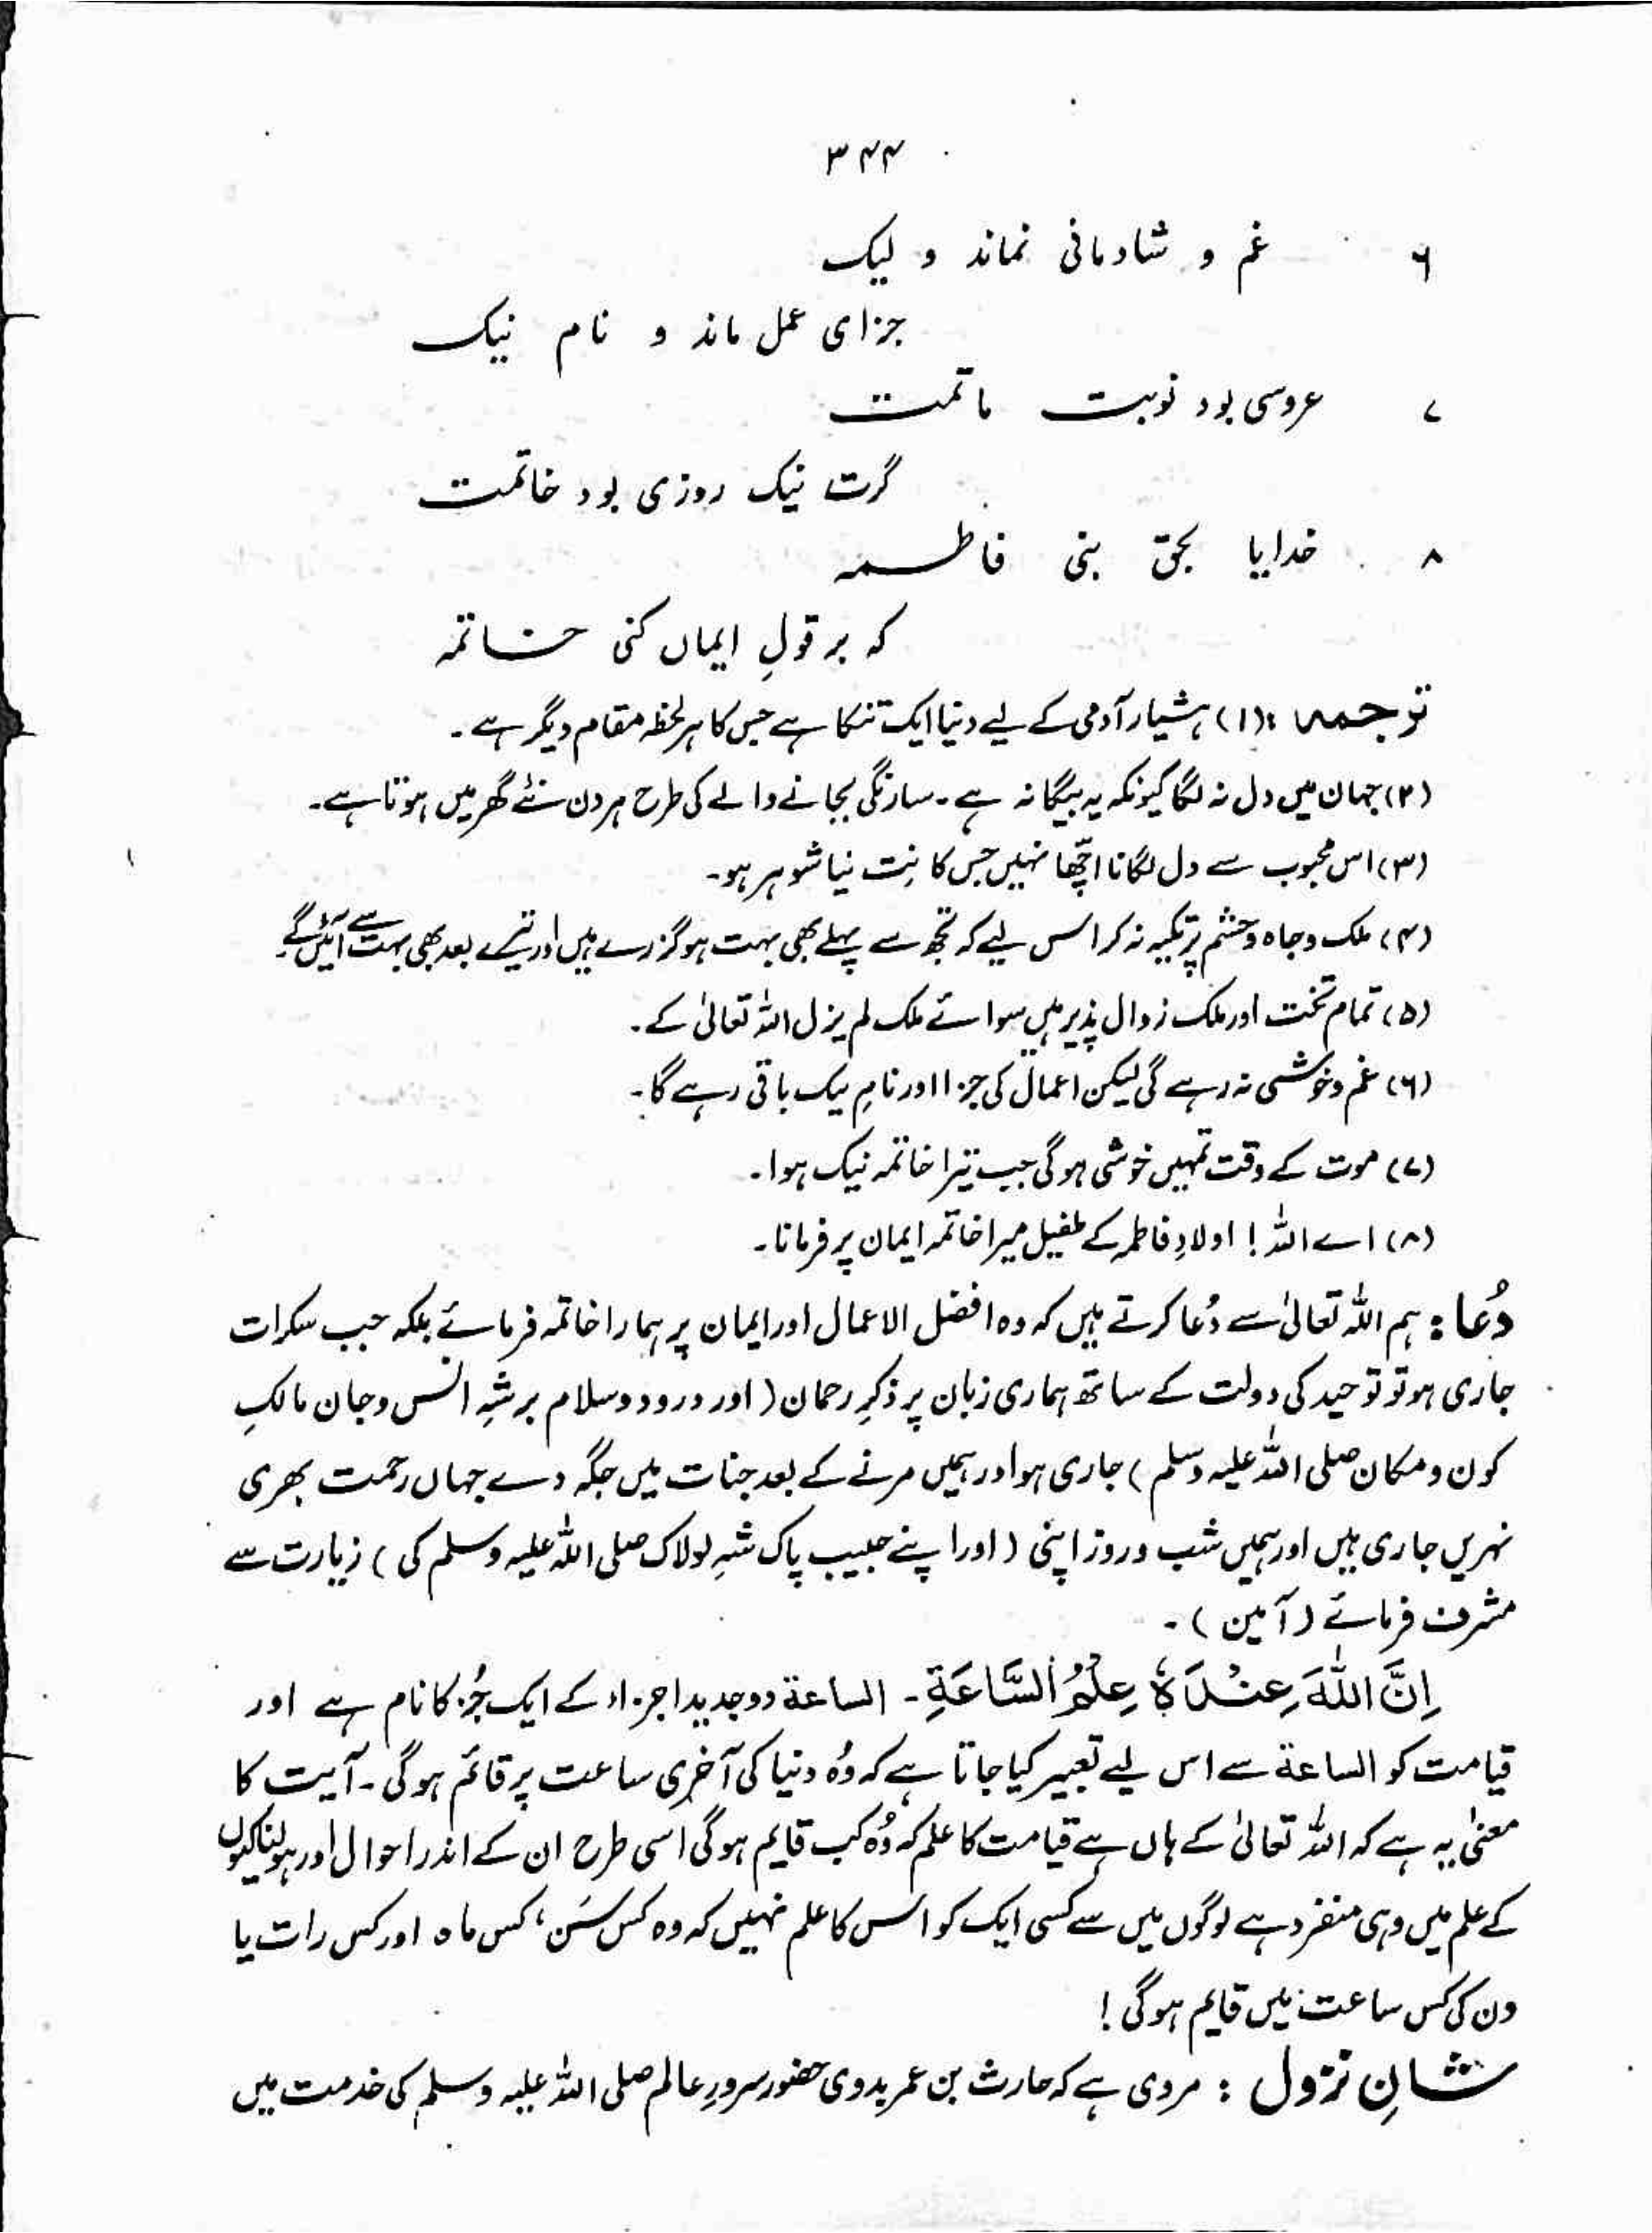 ۳۴۴
۶ غم و شادمانی نماند و لیک
جزای عمل ماند و نام نیک
۷ عروسی بود نوبت ماتمت
گرت نیک روزی بود خاتمت
۸ خدایا بحق بنی فاطمہ
کہ بر قولِ ایماں کنی خاتمہ
ترجمہ : (۱) ہشیار آدمی کے لیے دنیا ایک تنکا ہے جس کا ہر لحظہ مقام دیگر ہے۔
(۲) جہان میں دل نہ لگا کیونکہ یہ بیگانہ ہے۔ سارنگی بجانے والے کی طرح ہر دن نئے گھر میں ہوتا ہے۔
(۳) اس محبوب سے دل لگانا اچھّا نہیں جس کا نِت نیا شوہر ہو۔
(۴) ملک و جاہ و حشم پر تکیہ نہ کر اس لیے کہ تجھ سے پہلے بھی بہت ہو گزرے ہیں اور تیرے بعد بھی بہت سے آئیں گے۔
(۵) تمام تخت اور ملک زوال پذیر ہیں سوائے ملک لم یزل اللہ تعالیٰ کے۔
(۶) غم و خوشی نہ رہے گی لیکن اعمال کی جزا اور نامِ نیک باقی رہے گا۔
(۷) موت کے وقت تمہیں خوشی ہوگی جب تیرا خاتمہ نیک ہوا۔
(۸) اے اللہ ! اولادِ فاطمہ کے طفیل میرا خاتمہ ایمان پر فرمانا۔
دُعا : ہم اللہ تعالیٰ سے دُعا کرتے ہیں کہ وہ افضل الاعمال اور ایمان پر ہمارا خاتمہ فرمائے بلکہ جب سکرات
جاری ہو تو توحید کی دولت کے ساتھ ہماری زبان پر ذکرِ رحمان ( اور درود و سلام بر شہِ انس و جان مالکِ
کون و مکان صلی اللہ علیہ وسلم ) جاری ہو اور ہمیں مرنے کے بعد جنات میں جگہ دے جہاں رحمت بھری
نہریں جاری ہیں اور ہمیں شب و روز اپنی ( اور اپنے حبیب پاک شہِ لولاک صلی اللہ علیہ وسلم کی ) زیارت سے
مشرف فرمائے ( آمین ) ۔
اِنَّ اللہَ عِنْدَہٗ عِلْمُ السَّاعَةِ۔ الساعة دو جدید اجزاء کے ایک جُز کا نام ہے اور
قیامت کو الساعة سے اس لیے تعبیر کیا جاتا ہے کہ وُہ دنیا کی آخری ساعت پر قائم ہوگی۔ آیت کا
معنٰی یہ ہے کہ اللہ تعالیٰ کے ہاں ہے قیامت کا علم کہ وُہ کب قایم ہوگی اسی طرح ان کے اندر احوال اور ہولناکیوں
کے علم میں وہی منفرد ہے لوگوں میں سے کسی ایک کو اس کا علم نہیں کہ وہ کس سَن، کس ماہ اور کس رات یا
دن کی کس ساعت میں قایم ہوگی !
شانِ نزول : مروی ہے کہ حارث بن عمر بدوی حضور سرورِ عالم صلی اللہ علیہ وسلم کی خدمت میں